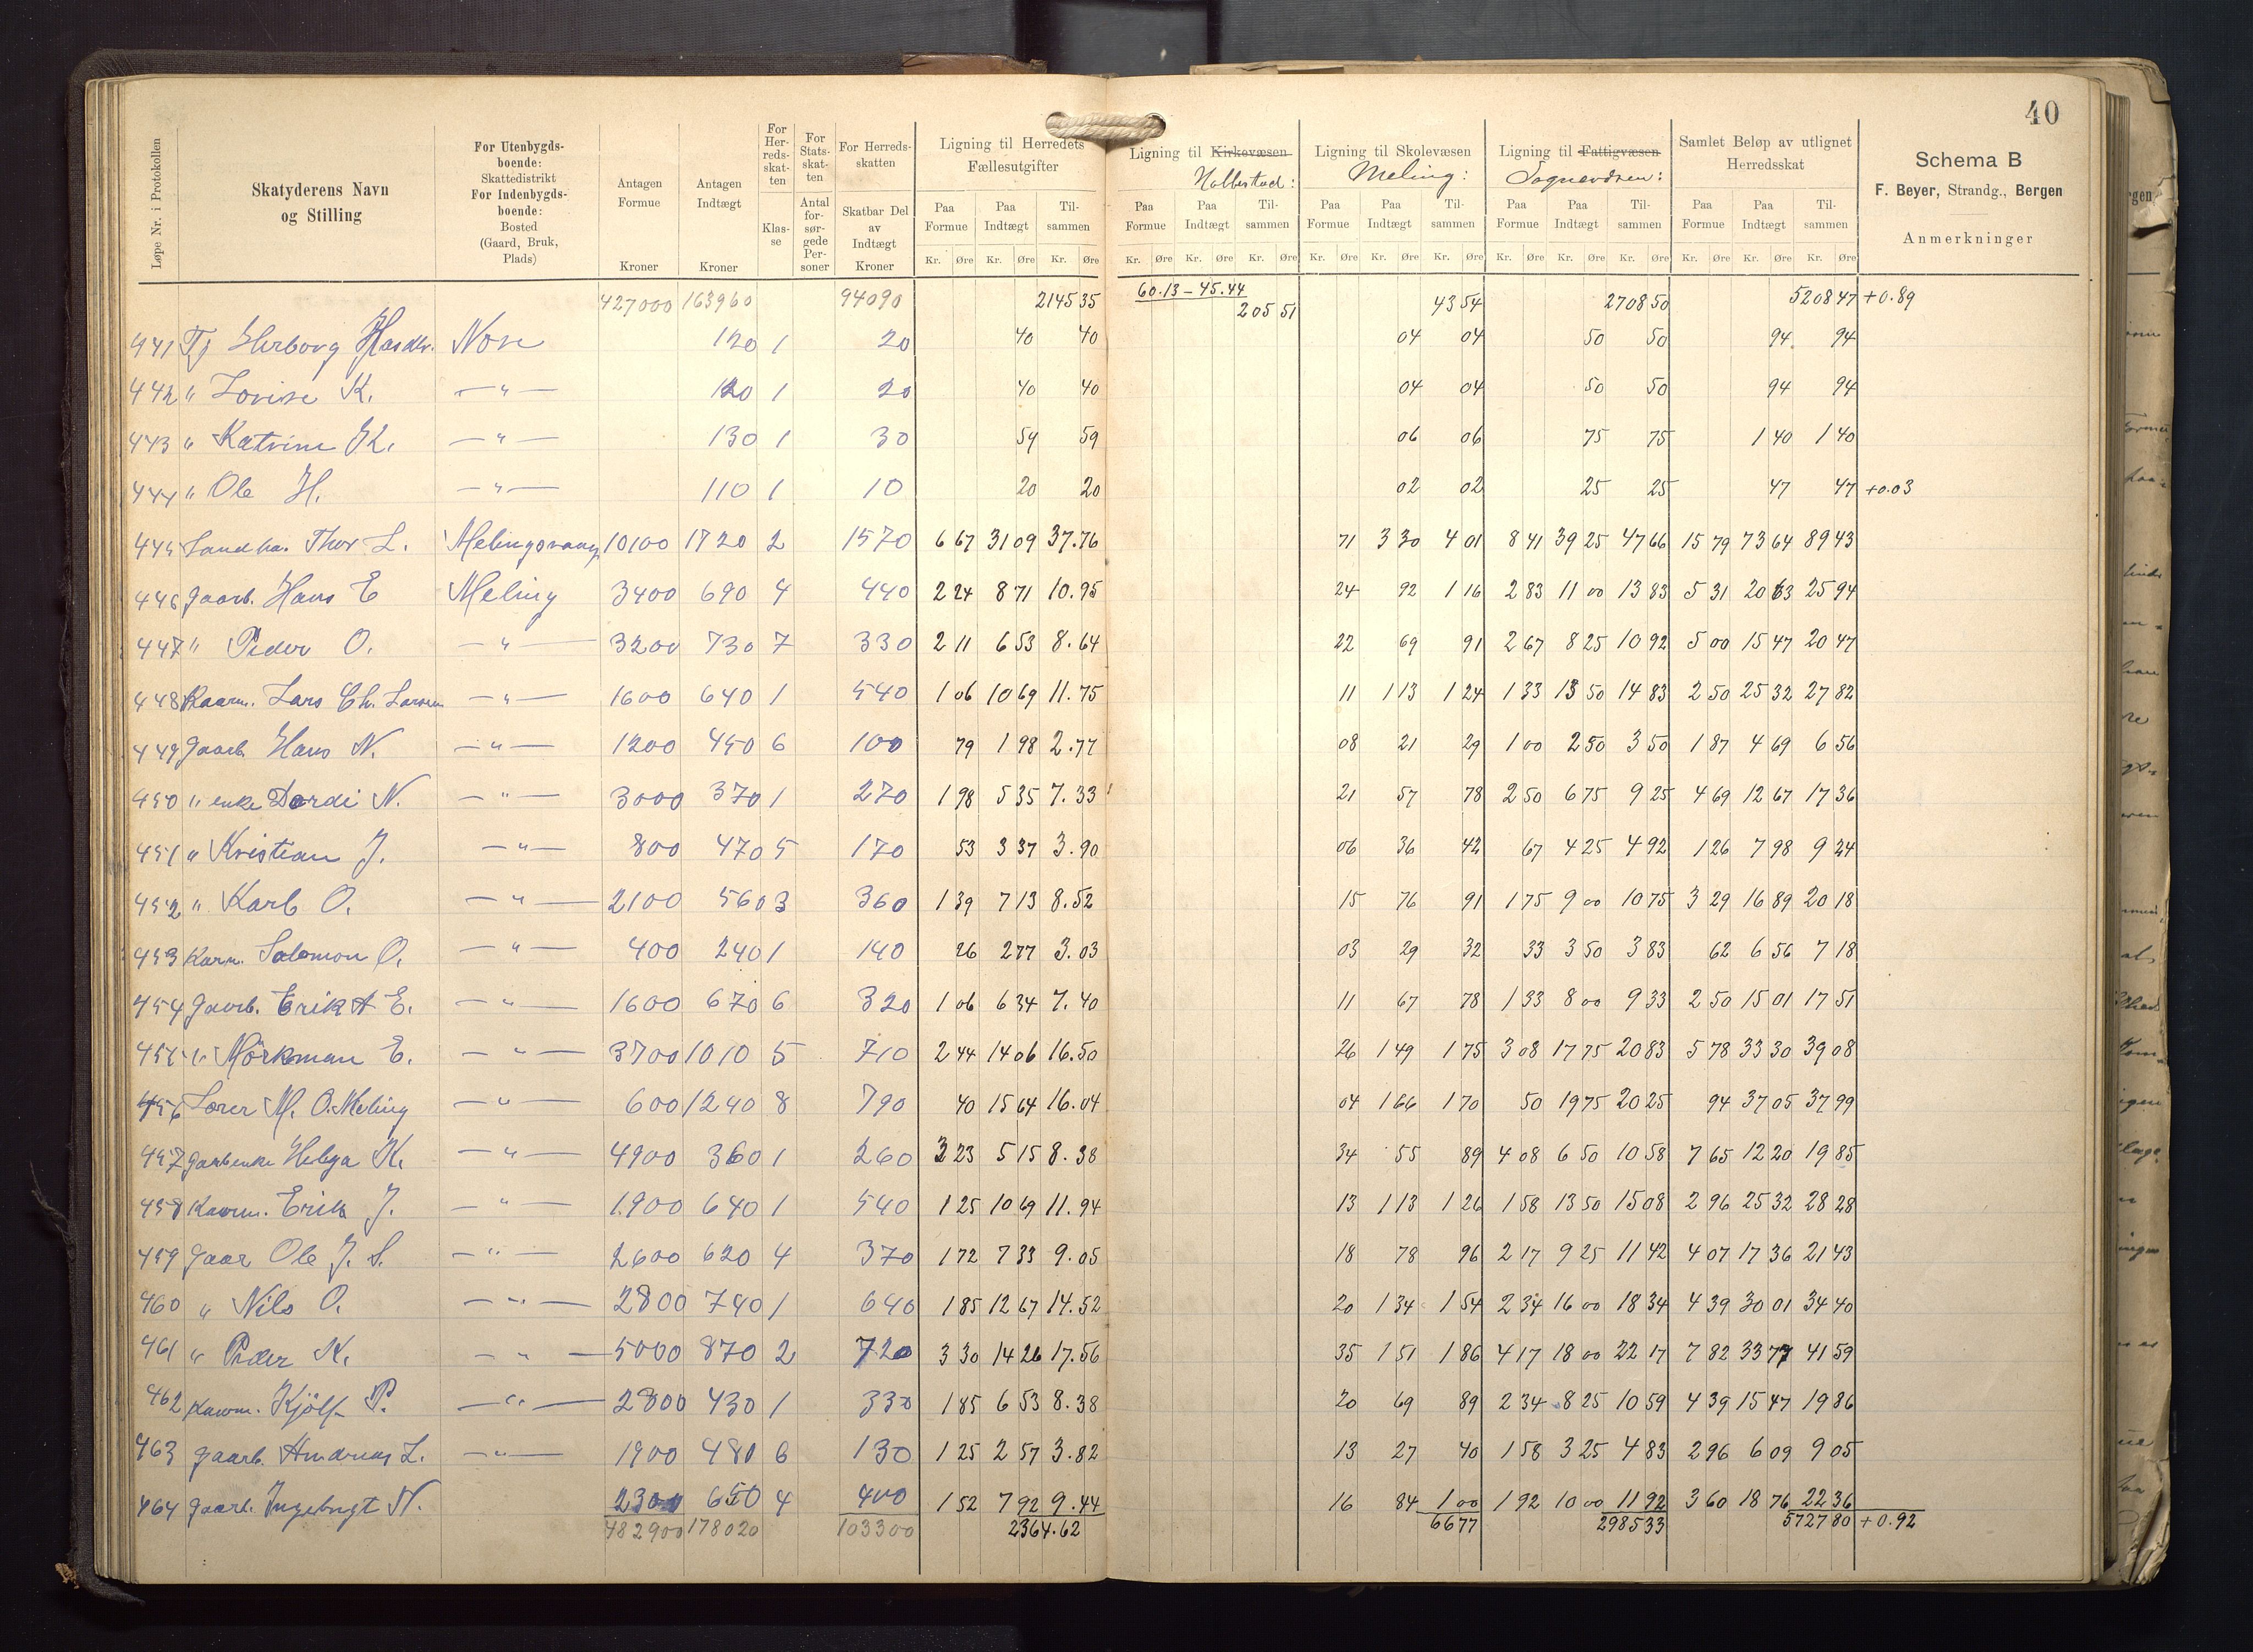 40
Løpe Nr. i Protokollen
Skatyderens Navn og Stilling
For Utenbygds-boende: Skattedistrikt For Indenbygds-boende: Bosted (Gaard, Bruk, Plads)
Antagen Formue Kroner
Antagen Indtægt Kroner
For Her-reds-skat-ten Klas-se
For Stats-skat-ten Antal for-sør-gede Per-soner
For Herreds-skatten Skatbar Del av Indtægt Kroner
Ligning til Herredets Fællesutgifter
Ligning til Kirkevæsen
Ligning til Skolevæsen Meling:
Ligning til Fattigvæsen
Samlet Beløp av utlignet Herredsskat
Schema B
F. Beyer, Strandg., Bergen
Anmerkninger
Paa Formue Paa Indtægt Til-sammen Paa Formue Paa Indtægt Til-sammen Paa Formue Paa Indtægt Til-sammen Paa Formue Paa Indtægt Til-sammen Paa Formue Paa Indtægt Til-sammen
Kr. Øre Kr. Øre Kr. Øre Kr. Øre Kr. Øre Kr. Øre Kr. Øre Kr. Øre Kr. Øre Kr. Øre Kr. Øre Kr. Øre Kr. Øre Kr. Øre Kr. Øre
427000 163960 94090 2145 35 60.13 – 45.44 205 51 43 54 2708 50 5208 47 +0.89
441 Tj Herborg Nose 120 1 20 40 40 04 04 50 50 94 94
442 " Lovise K. — " — 120 1 20 40 40 04 04 50 50 94 94
443 " Katrine K. — " — 130 1 30 59 59 06 06 75 75 1 40 1 40
444 " Ole H. — " — 110 1 10 20 20 02 02 25 25 47 47 +0.03
445 Thor L. 10100 1720 2 1570 6 67 31 09 37.76 71 3 30 4 01 8 41 39 25 47 66 15 79 73 64 89 43
446 Gaarb. Hans E Meling 3400 690 4 440 2 24 8 71 10.95 24 92 1 16 2 83 11 00 13 83 5 31 20 63 25 94
447 " Peder O. — " — 3200 730 7 330 2 11 6 53 8.64 22 69 91 2 67 8 25 10 92 5 00 15 47 20 47
448 Kaarm. Lars Ch. Larsen — " — 1600 640 1 540 1 06 10 69 11.75 11 1 13 1 24 1 33 13 50 14 83 2 50 25 32 27 82
449 Gaarb Hans N. — " — 1200 450 6 100 79 1 98 2.77 08 21 29 1 00 2 50 3 50 1 87 4 69 6 56
450 " enke Dordi N. — " — 3000 370 1 270 1 98 5 35 7.33 21 57 78 2 50 6 75 9 25 4 69 12 67 17 36
451 " Kristian J. — " — 800 470 5 170 53 3 37 3.90 06 36 42 67 4 25 4 92 1 26 7 98 9 24
452 " Karl O. — " — 2100 560 3 360 1 39 7 13 8.52 15 76 91 1 75 9 00 10 75 3 29 16 89 20 18
453 Karm. Salomon O. — " — 400 240 1 140 26 2 77 3.03 03 29 32 33 3 50 3 83 62 6 56 7 18
454 Gaarb. Erik A E. — " — 1600 670 6 320 1 06 6 34 7.40 11 67 78 1 33 8 00 9 33 2 50 15 01 17 51
455 " Mörkman E. — " — 3700 1010 5 710 2 44 14 06 16.50 26 1 49 1 75 3 08 17 75 20 83 5 78 33 30 39 08
456 Lærer M. O. Meling — " — 600 1240 8 790 40 15 64 16.04 04 1 66 1 70 50 19 75 20 25 94 37 05 37 99
457 Gaarbenke Helga K. — " — 4900 360 1 260 3 23 5 15 8.38 34 55 89 4 08 6 50 10 58 7 65 12 20 19 85
458 Kaarm. Erik J. — " — 1900 640 1 540 1 25 10 69 11.94 13 1 13 1 26 1 58 13 50 15 08 2 96 25 32 28 28
459 Gaar Ole J. S. — " — 2600 620 4 370 1 72 7 33 9.05 18 78 96 2 17 9 25 11 42 4 07 17 36 21 43
460 " Nils O. — " — 2800 740 1 640 1 85 12 67 14.52 20 1 34 1 54 2 34 16 00 18 34 4 39 30 01 34 40
461 " Peder K. — " — 5000 870 2 720 3 30 14 26 17.56 35 1 51 1 86 4 17 18 00 22 17 7 82 33 77 41 59
462 Kaarm. Kjölf P. — " — 2800 430 1 330 1 85 6 53 8.38 20 69 89 2 34 8 25 10 59 4 39 15 47 19 86
463 Gaarb. Andreas L. — " — 1900 480 6 130 1 25 2 57 3.82 13 27 40 1 58 3 25 4 83 2 96 6 09 9 05
464 Gaarb. Ingebrigt N. 2300 650 4 400 1 52 7 92 9.44 16 84 1 00 1 92 10 00 11 92 3 60 18 76 22 36
482900 178020 103300 2364.62 66 77 2985 33 5727 80 +0.92